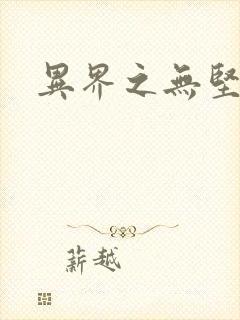 異界之無堅
薪越